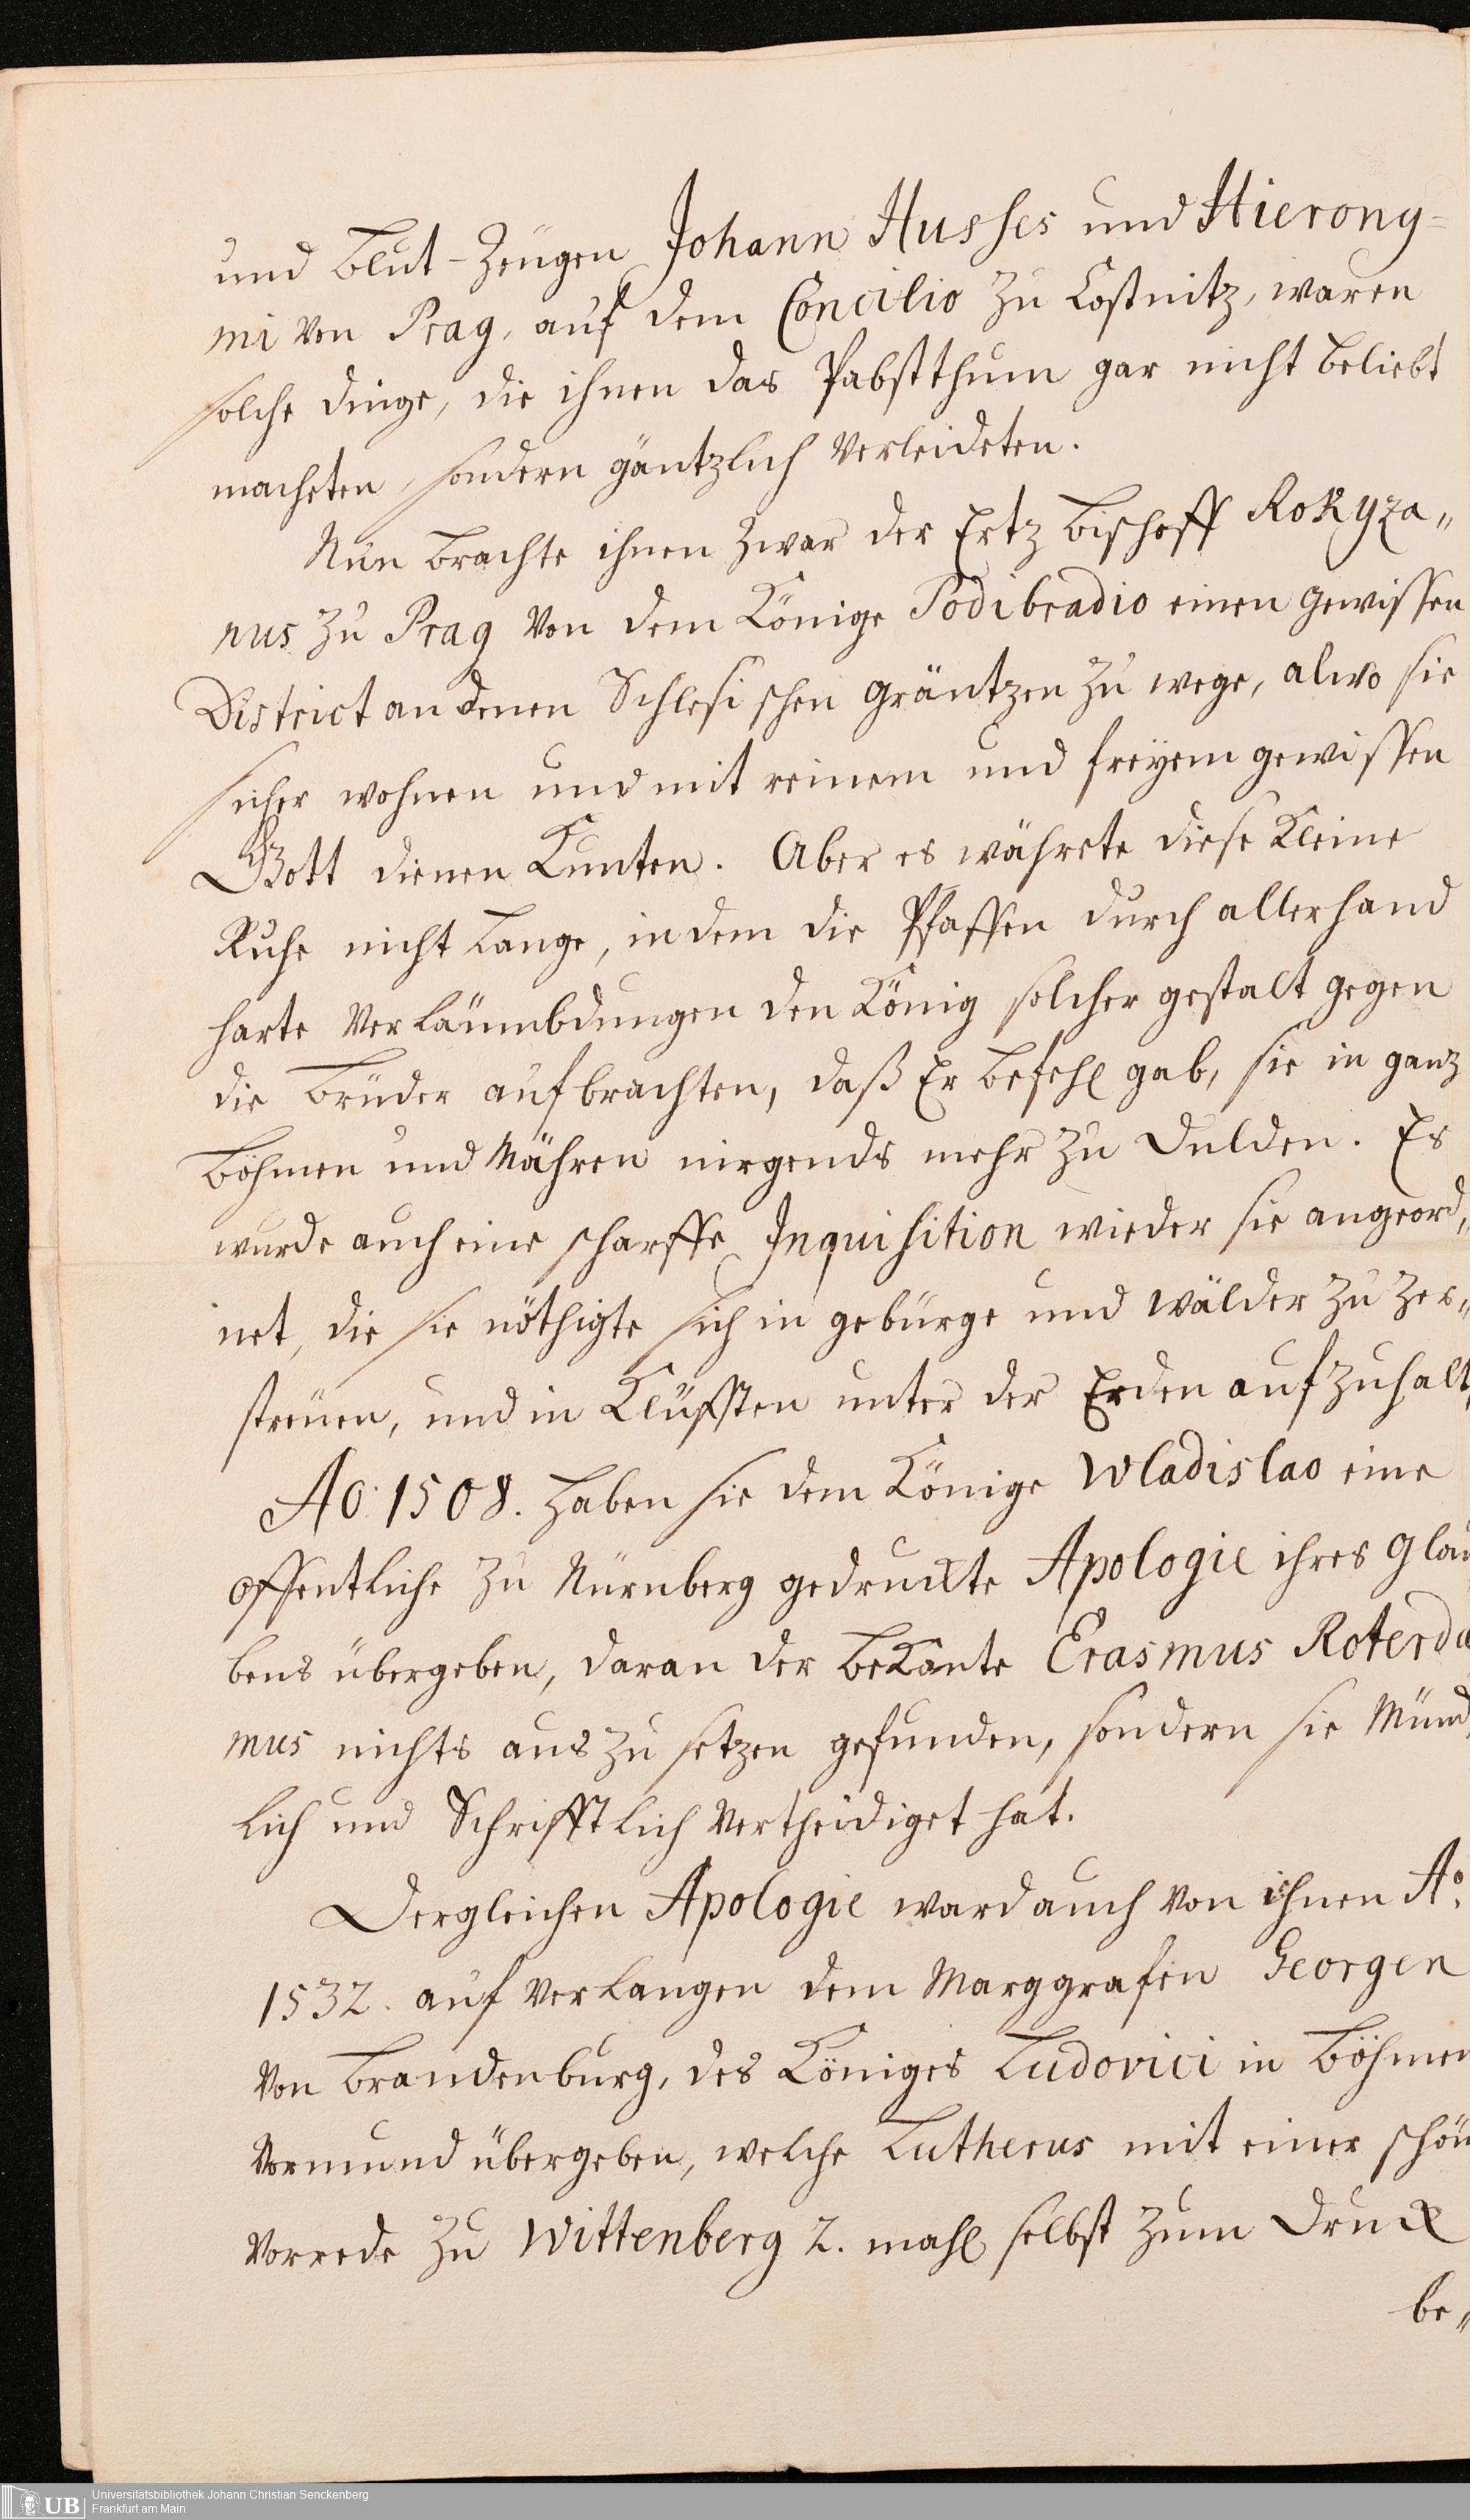 und Blut-Zeugen Johann Husses und Hierony=
mi von Prag, auf dem Concilio zu Costnitz, waren
solche Dinge, die ihnen das Pabstthum gar nicht beliebt
macheten, sondern gäntzlich verleideten.
Nun brachte ihnen zwar der Ertz Bischoff Rokyza„
nus zu Prag von dem Könige Podibradio einen gewissen
District an denen Schlesischen Gräntzen zu wege, alwo sie
sicher wohnen und mit reinem und freyem gewissen
Gott dienen kunten. Aber es währete diese kleine
Ruhe nicht lange, in dem die Pfaffen durch allerhand
harte Verläumbdungen den König solcher gestalt gegen
die Brüder aufbrachten, daß Er befehl gab, sie in ganz
Böhmen und Mähren nirgends mehr zu dulden. Es
wurde auch eine scharffe Inquisition wieder sie angeord„
net, die sie nöthigte sich in gebürge und Wälder zu zer„
streuen, und in Klüfften unter der Erden aufzuhalt„
Ao: 1508. haben sie dem Könige Wladislao eine
offentliche zu Nürnberg gedruckte Apologie ihres Glau
bens übergeben, daran der bekante Erasmus Roterda
mus nichts aus zu setzen gefunden, sondern sie Münd„
lich und Schrifftlich vertheidiget hat.
Dergleichen Apologie ward auch von ihnen Ao.
1532. auf verlangen dem Marggrafen Georgen
von Brandenburg, des Königes Ludovici in Böhmen
Vormund übergeben, welche Lutherus mit einer schön
Vorrede zu Wittenberg 2. mahl selbst zum Druck
be„
UB Universitätsbibliothek Johann Christian Senckenberg
Frankfurt am Main